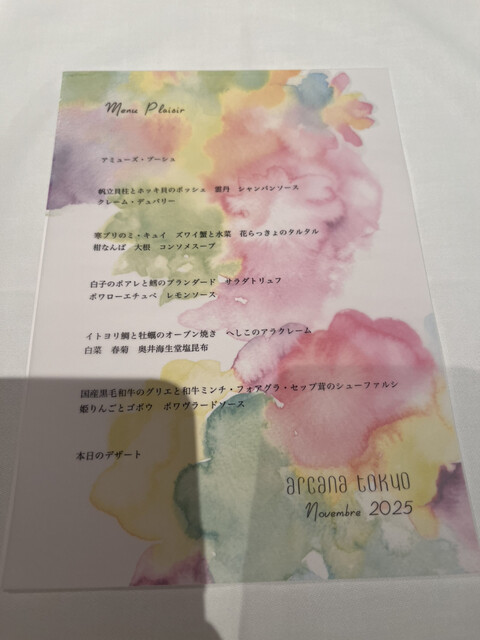 Menu Plaisir
アミューズ・ブーシュ
帆立貝柱とホッキ貝のポッシェ　雲丹　シャンパンソース
クレーム・デュバリー
寒ブリのミ・キュイ　ズワイ蟹と水菜　花らっきょのタルタル
柑なんば　大根　コンソメスープ
白子のポアレと鱈のブランダード　サラダトリュフ
ポワローエチュベ　レモンソース
イトヨリ鯛と牡蠣のオーブン焼き　へしこのアラクレーム
白菜　春菊　奥井海生堂塩昆布
国産黒毛和牛のグリエと和牛ミンチ・フォアグラ・セップ茸のシューファルシ
姫りんごとゴボウ　ポワヴラードソース
本日のデザート
arcana tokyo
Novembre 2025